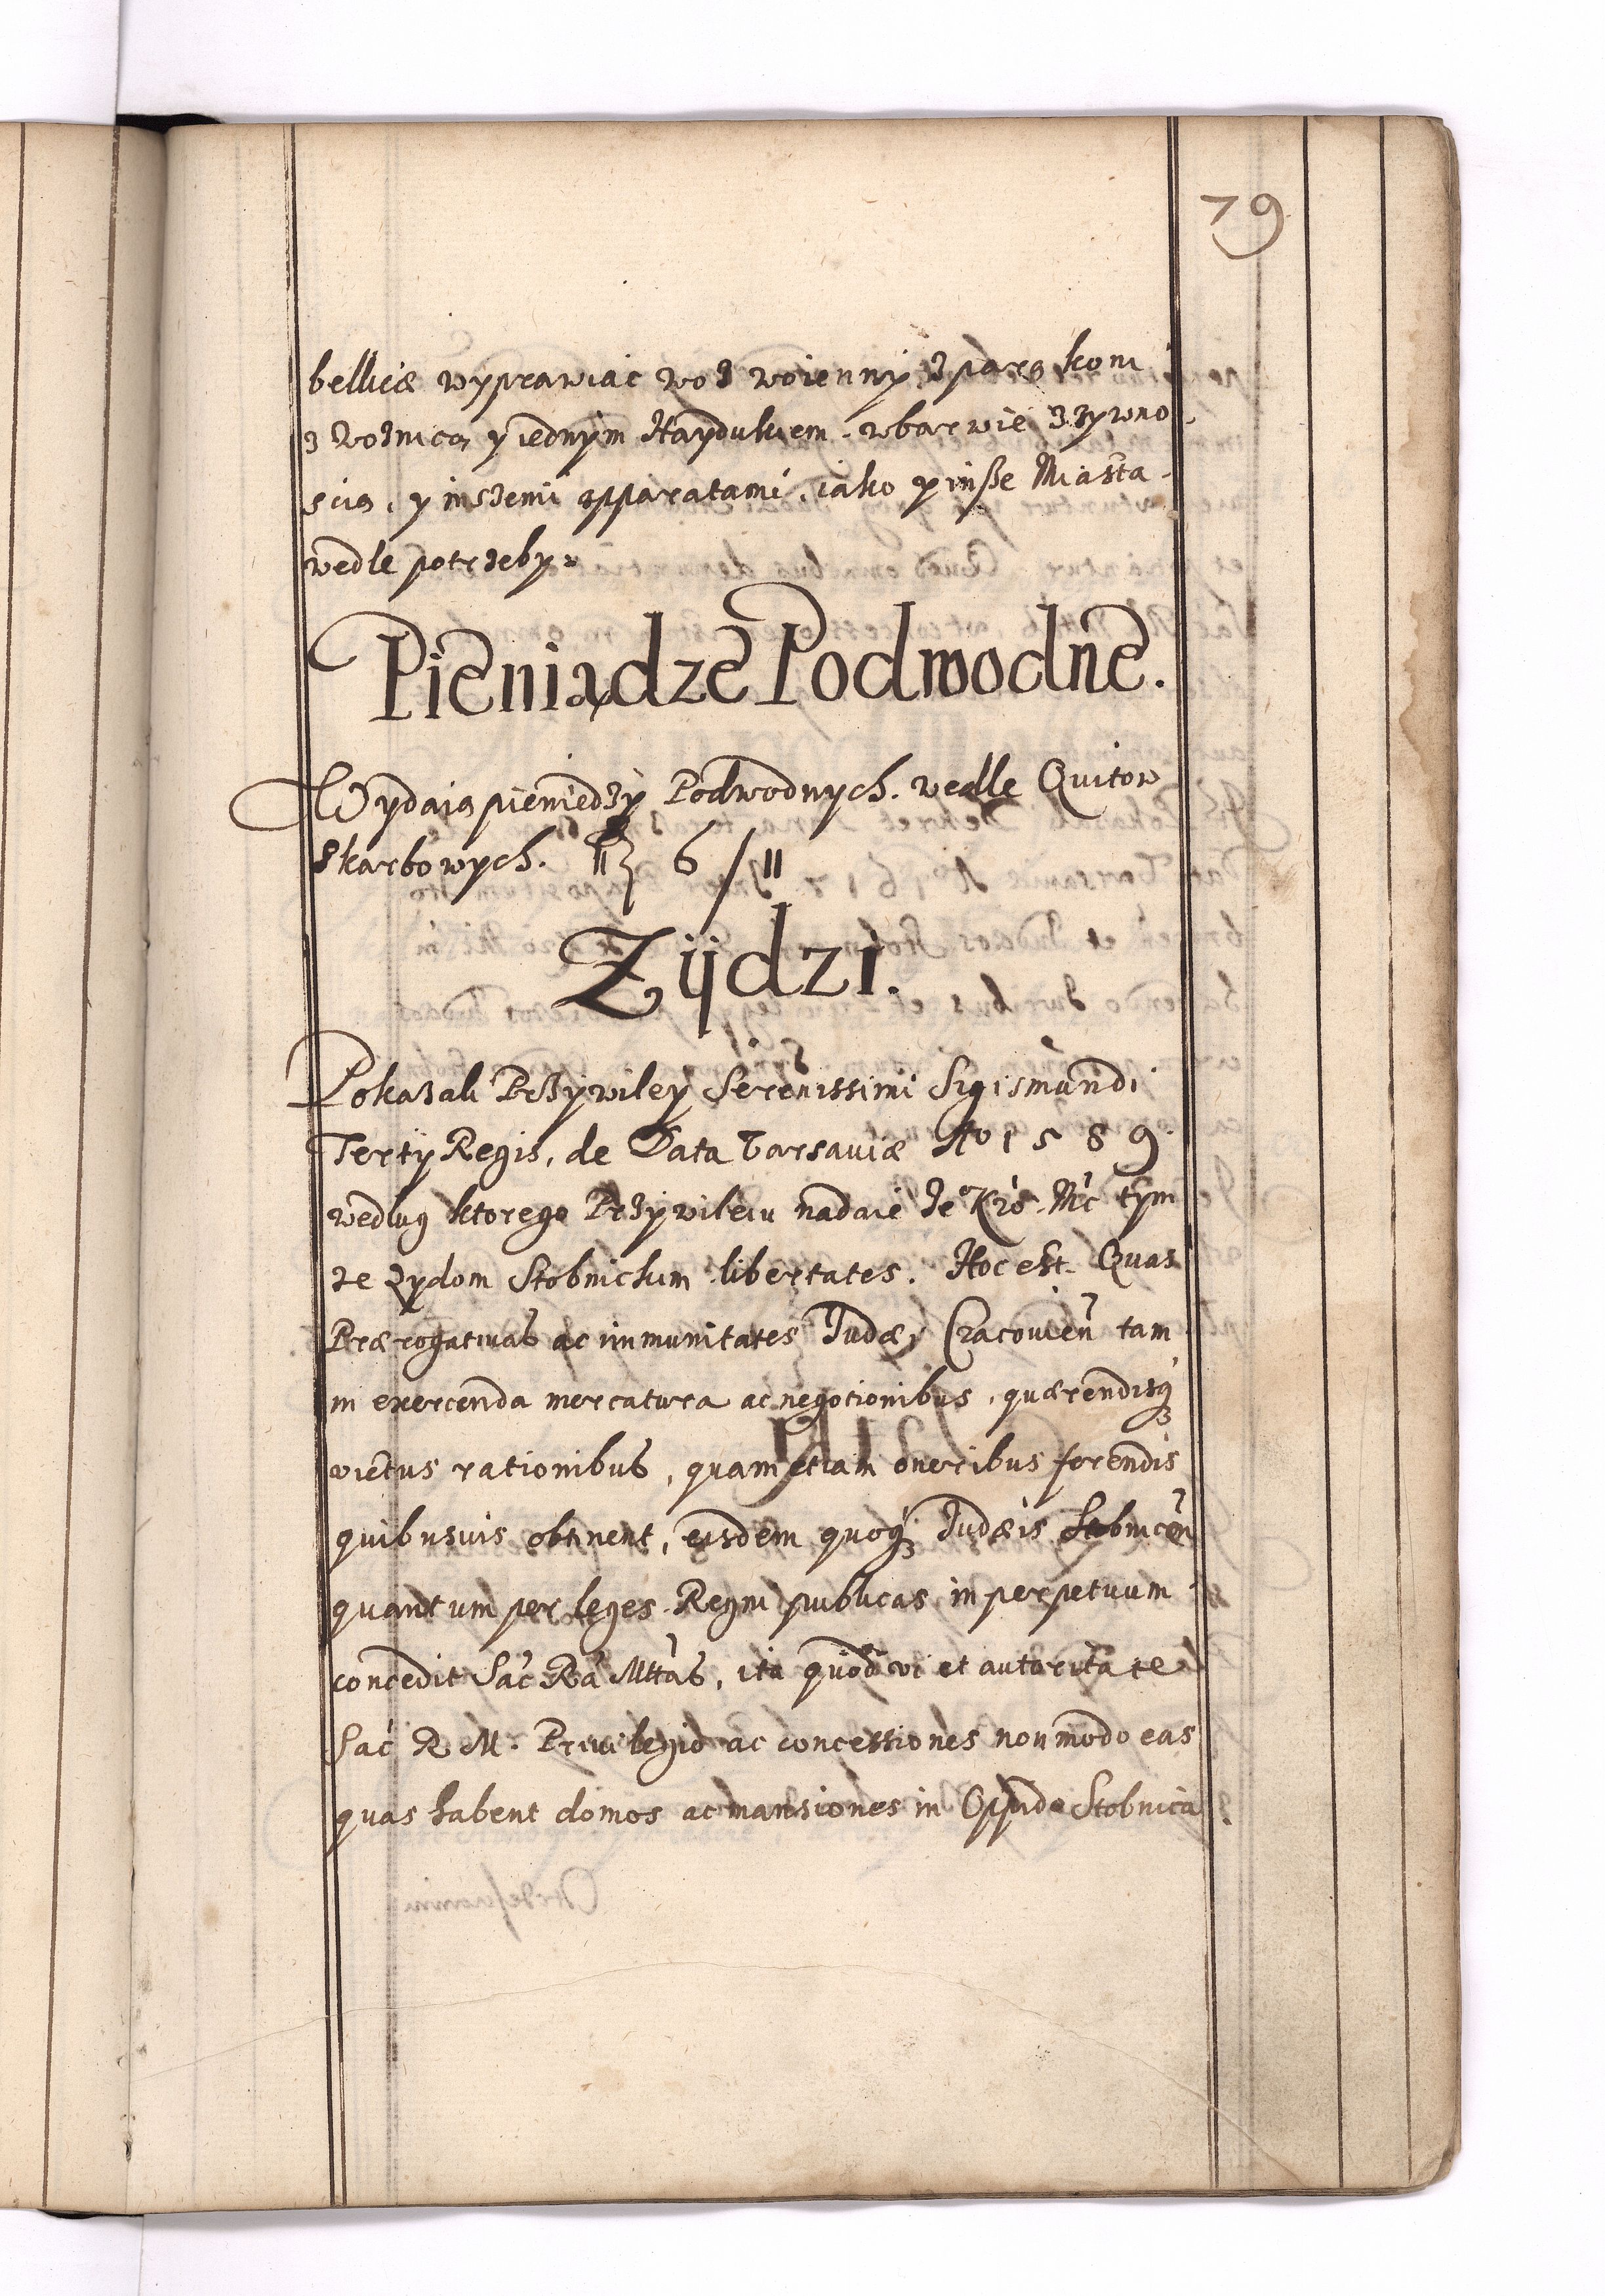 79
bellicæ wyprawiac woz woienny, z parą koni
z Woznicą y iednym Haydukiem. wbarwie z zywno
scią, y inszemi apparatami, iako y insze Miasta
wedle potrzeby.
Pieniądze Podwodne.
Wydaią pieniedzy Podwodnych. wedle Quitow
Skarbowych. 6/11
Zydzi.
Pokazali Przywiley Serenissimi Sigismundi
Tertij Regis, de Data Varsaviæ Aº 1589
wedlug ktorego Przywileiu nadaie Je° Kró. Mć tym
ze Zydom Stobnickim libertates. Hoc est. Quas
Prærogativas ac immunitates Judæi Cracovień tam
in exercenda mercatura ac negotionibus, quærendisq̃
victus rationibus, quam etiam oneribus ferendis
quibusuis obtinent, eisdem quoq̃ Judæis Stobniceñ
quantum per leges Regni publicas in perpetuum
concedit Sać Rá Mttàs, ita quod vi et autoritate
Sać R M. Privilegio ac concessiones non modo eas
quas habent domos ac mansiones in Oppido Stobnica